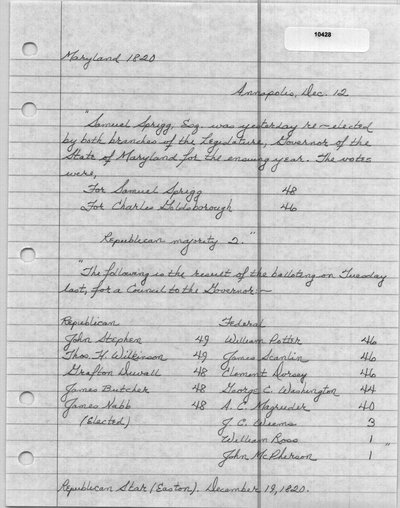 10428
Maryland 1820
Annapolis, Dec. 12
"Samuel Sprigg, Esq. was yesterday re-elected
by both branches of the Legislature, Governor of the
State of Maryland for the ensuing year. The votes
were,
For Samuel Sprigg 48
For Charles Goldsborough 46
Republican majority 2."
"The following is the result of the balloting on Tuesday
last, for a Council to the Governor:—
Republican Federal
John Stephen 49 William Potter 46
Thos. H. Wilkinson 49 James Scanlin 46
Grafton Duvall 48 Clement Dorsey 46
James Butcher 48 George C. Washington 44
James Nabb 48 A. C. Magruder 40
(Elected) J. C. Weems 3
William Ross 1
John McPherson 1 "
Republican Star (Easton). December 19, 1820.